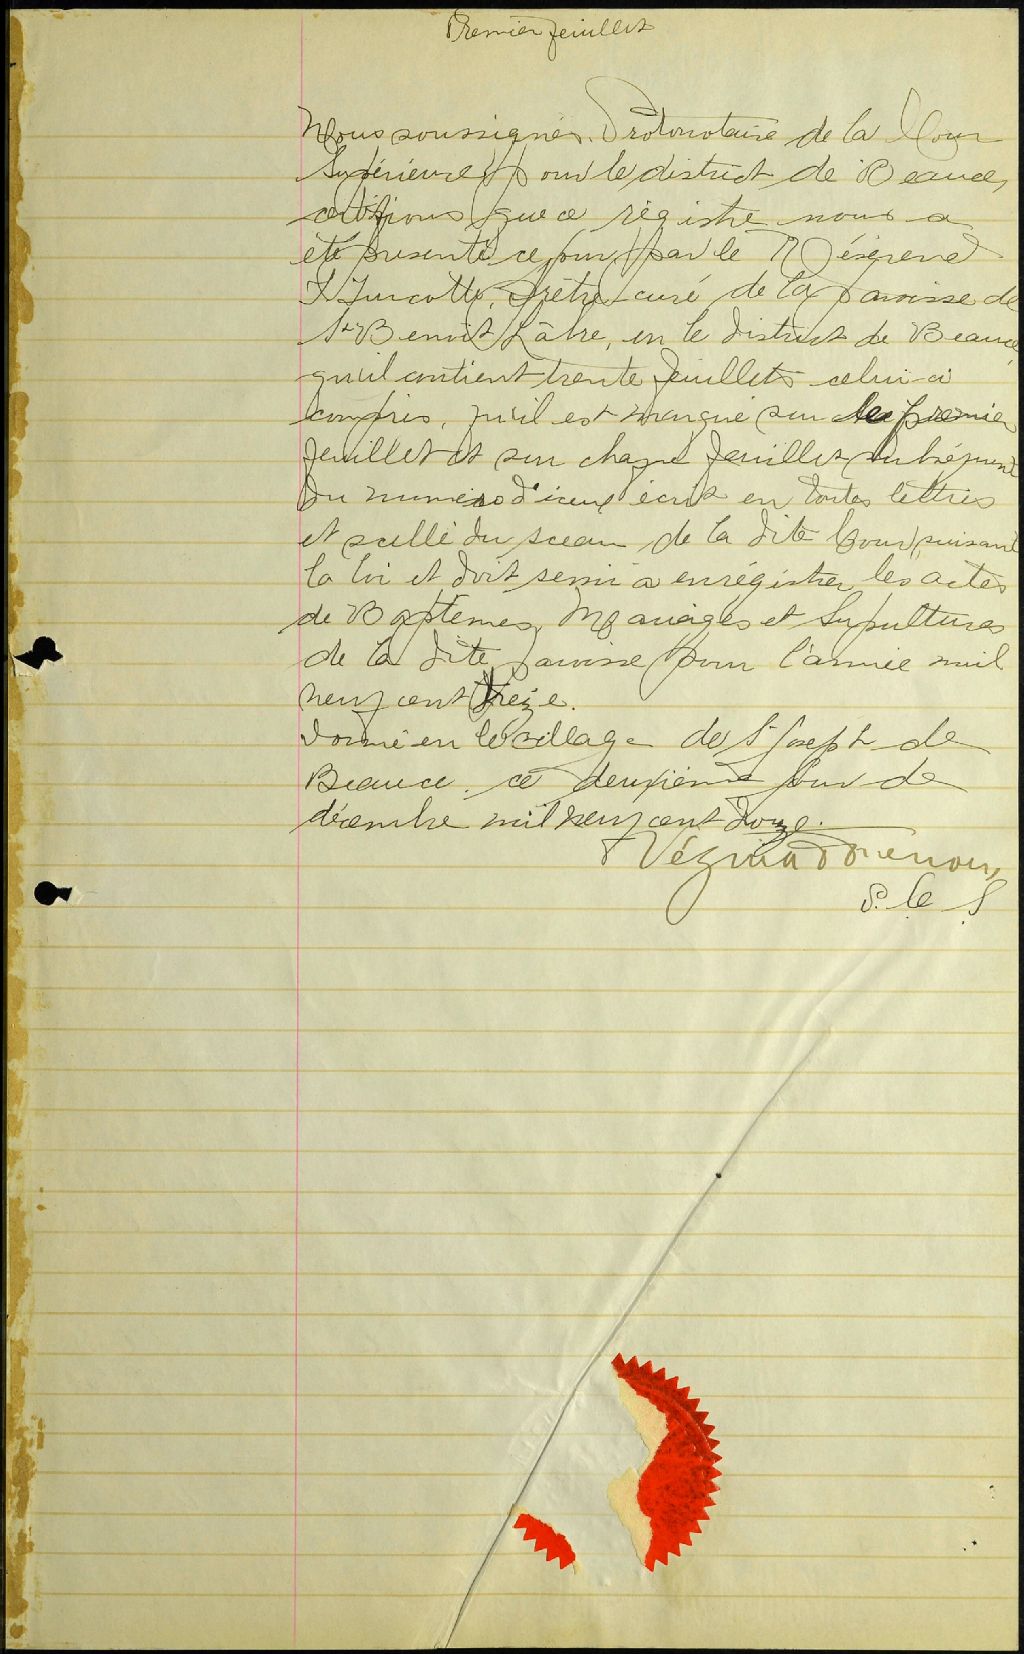 Premier feuillet
Nous soussignés, Protonotaire de la Cour
Supérieure pour le district de Beauce,
certifions que ce régistre nous a
été présenté ce jour par le Révérend
Turcotte, Prêtre curé de la paroisse de
St Benoit Lâbre, en le district de Beauce
qu'il contient trente feuillets celui-ci
compris, qu'il est marqué sur le premier
feuillet et sur chaque feuillet subséquent
du numéro d'iceux écrit en toutes lettres
et scellé du sceau de la dite Cour, suivant
la loi et doit servir à enrégistrer les actes
de Baptêmes, Mariages et Sépultures
de la dite paroisse pour l'année mil
neuf cent treize.
Donné en le village de St Joseph de
Beauce, ce deuxième jour de
décembre mil neuf cent douze.
Vézina
P. C. S